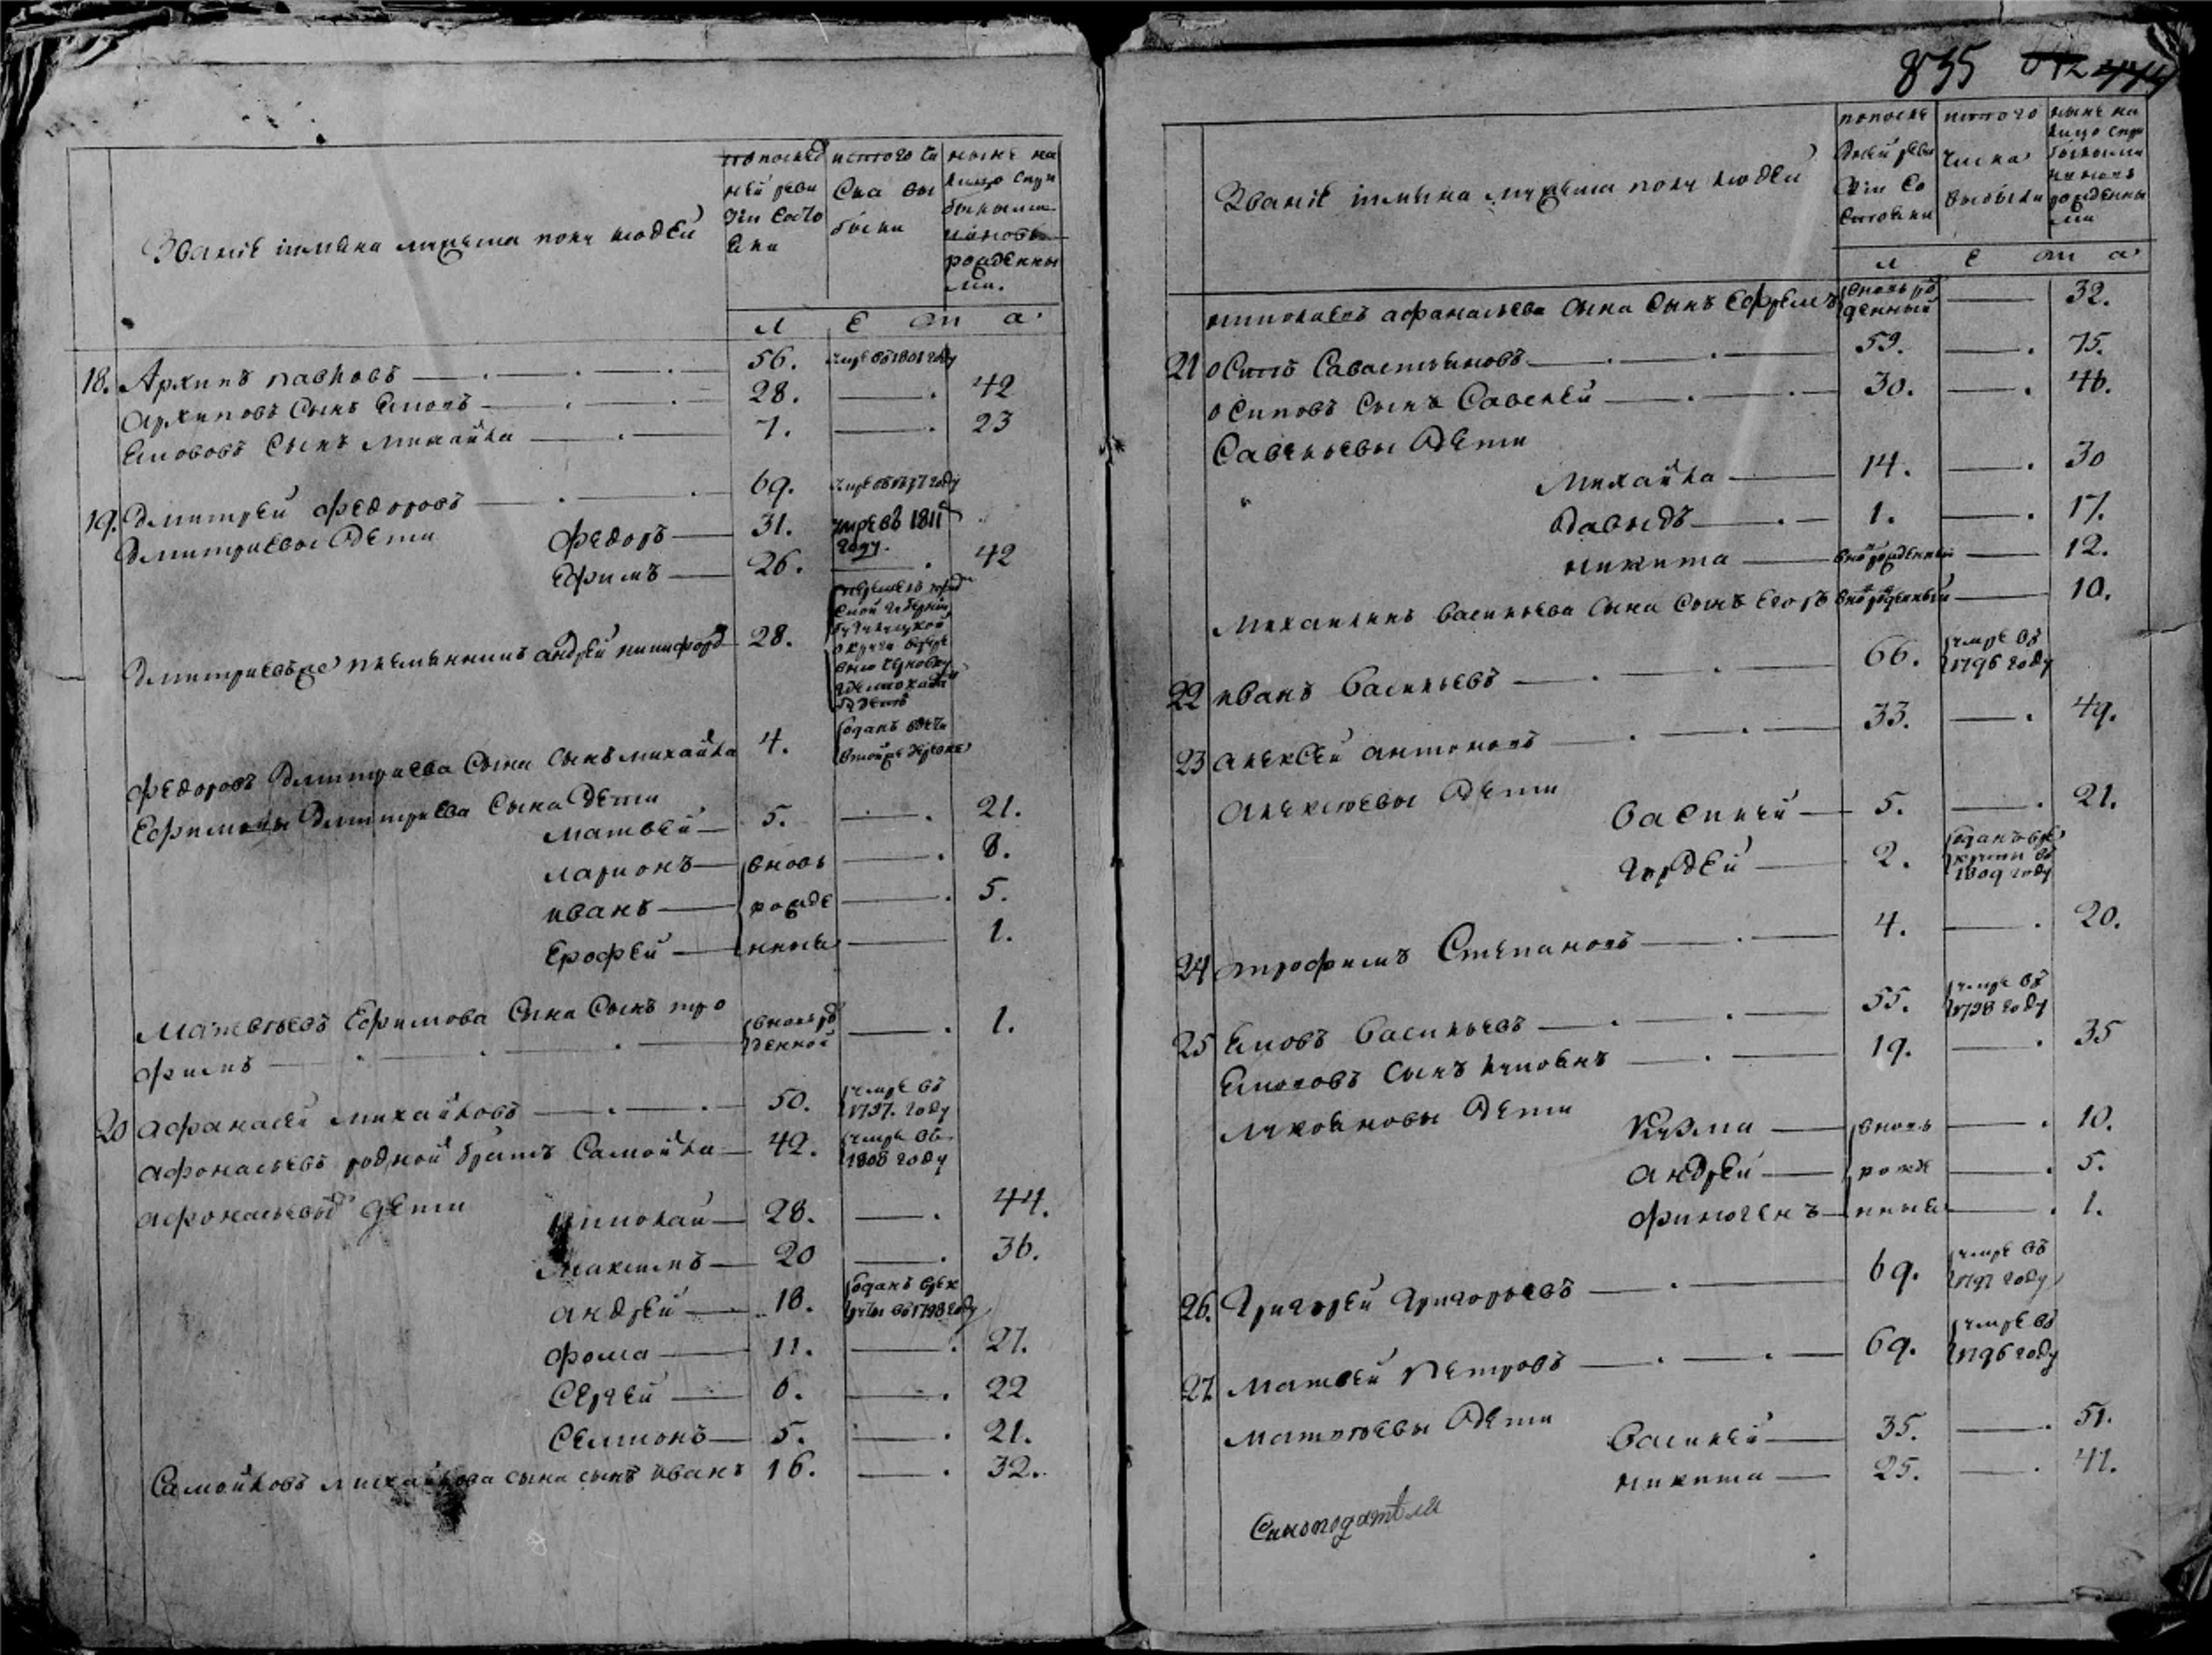 Званіе іимѣна мужеска полу людей
попослед
ней реви
зіи состо
яли
изтого чи
сла вы
были
нынѣ на
лицо спри
былыми
иновь
рожденны
ми.
л е т а
18. Архипъ павловъ 56. умре въ 1801 году
Архиповъ Сынъ Яковъ 28. 42
Якововъ Сынъ михайла 7. 23
19. Дмитрей федоровъ 69. умре въ году
Дмитриевы Дети федоръ 31. умре въ 1811 году.
Ефимъ 26. 42
Дмитриевъже племянникъ андрей никифоръ 28.
федоровъ Дмитриева Сына Сынъ михайла 4. отданъ
Ефимовы Дмитриева Сына Дети
матвей 5. 21.
ларионъ вновь 8.
иванъ рожде 5.
Ерофей нныя 1.
Матвеевъ Ефимова Сына Сынъ тро
фимъ вновь рожденной 1.
20 Афанасей михайловъ 50. умре въ 1797. году
Афонасьевъ родной братъ Самойла 42. умре въ 1808 году
афонасьевы дети николай 28. 44.
максимъ 20 36.
андрей 18. отданъ врек руты въ 1798 году
фома 11. 27.
Сергей 6. 22
Семионъ 5. 21.
Самойловъ михайлова сына сынъ иванъ 16. 32.
835
Званіе іимѣна мужеска полу людей
попослѣ
дней реви
зіи со
стояли
изтого
числа
выбыли
нынѣ на
лицо спри
былыми
иновь
рожденны
ми
л е т а
николаевъ афанасьева сына сынъ Ефремъ вновь рожденный 32.
21 Осипъ Савастьяновъ 59. 75.
Осиповъ Сынъ Савелей 30. 46.
Савельевы Дети
Михайла 14. 30
Давыдъ 1. 17.
никита вновь рожденный 12.
Михаилинъ Савельева Сына Сынъ Егоръ вновь рожденный 10.
22 иванъ Васильевъ 66. умре въ 1796 году
23 Алексей антоновъ 33. 49.
Алексеевы Дети Василей 5. 21.
гордей 2. отданъ врекруты въ 1809 году
24 трофимъ Степановъ 4. 20.
25 Яковъ Васильевъ 55. умре въ 1798 году
Якововъ Сынъ лукоянъ 19. 35
лукояновы Дети Кузма вновь 10.
андрей рожде 5.
финогенъ нныя 1.
26. Григорей Григорьевъ 69. умре въ 1797 году
27 Матвей Петровъ 69. умре въ 1796 году
матвеевы Дети Василей 35. 51.
никита 25. 41.